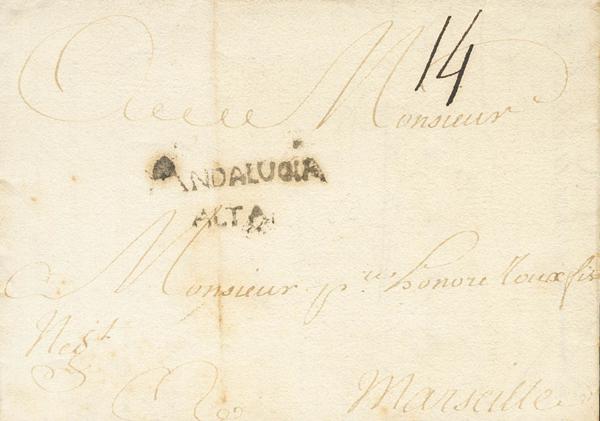 14
Monsieur
ANDALUCIA
ALTA
Monsieur p.re honoré Roux fils
Neg.t
Marseille